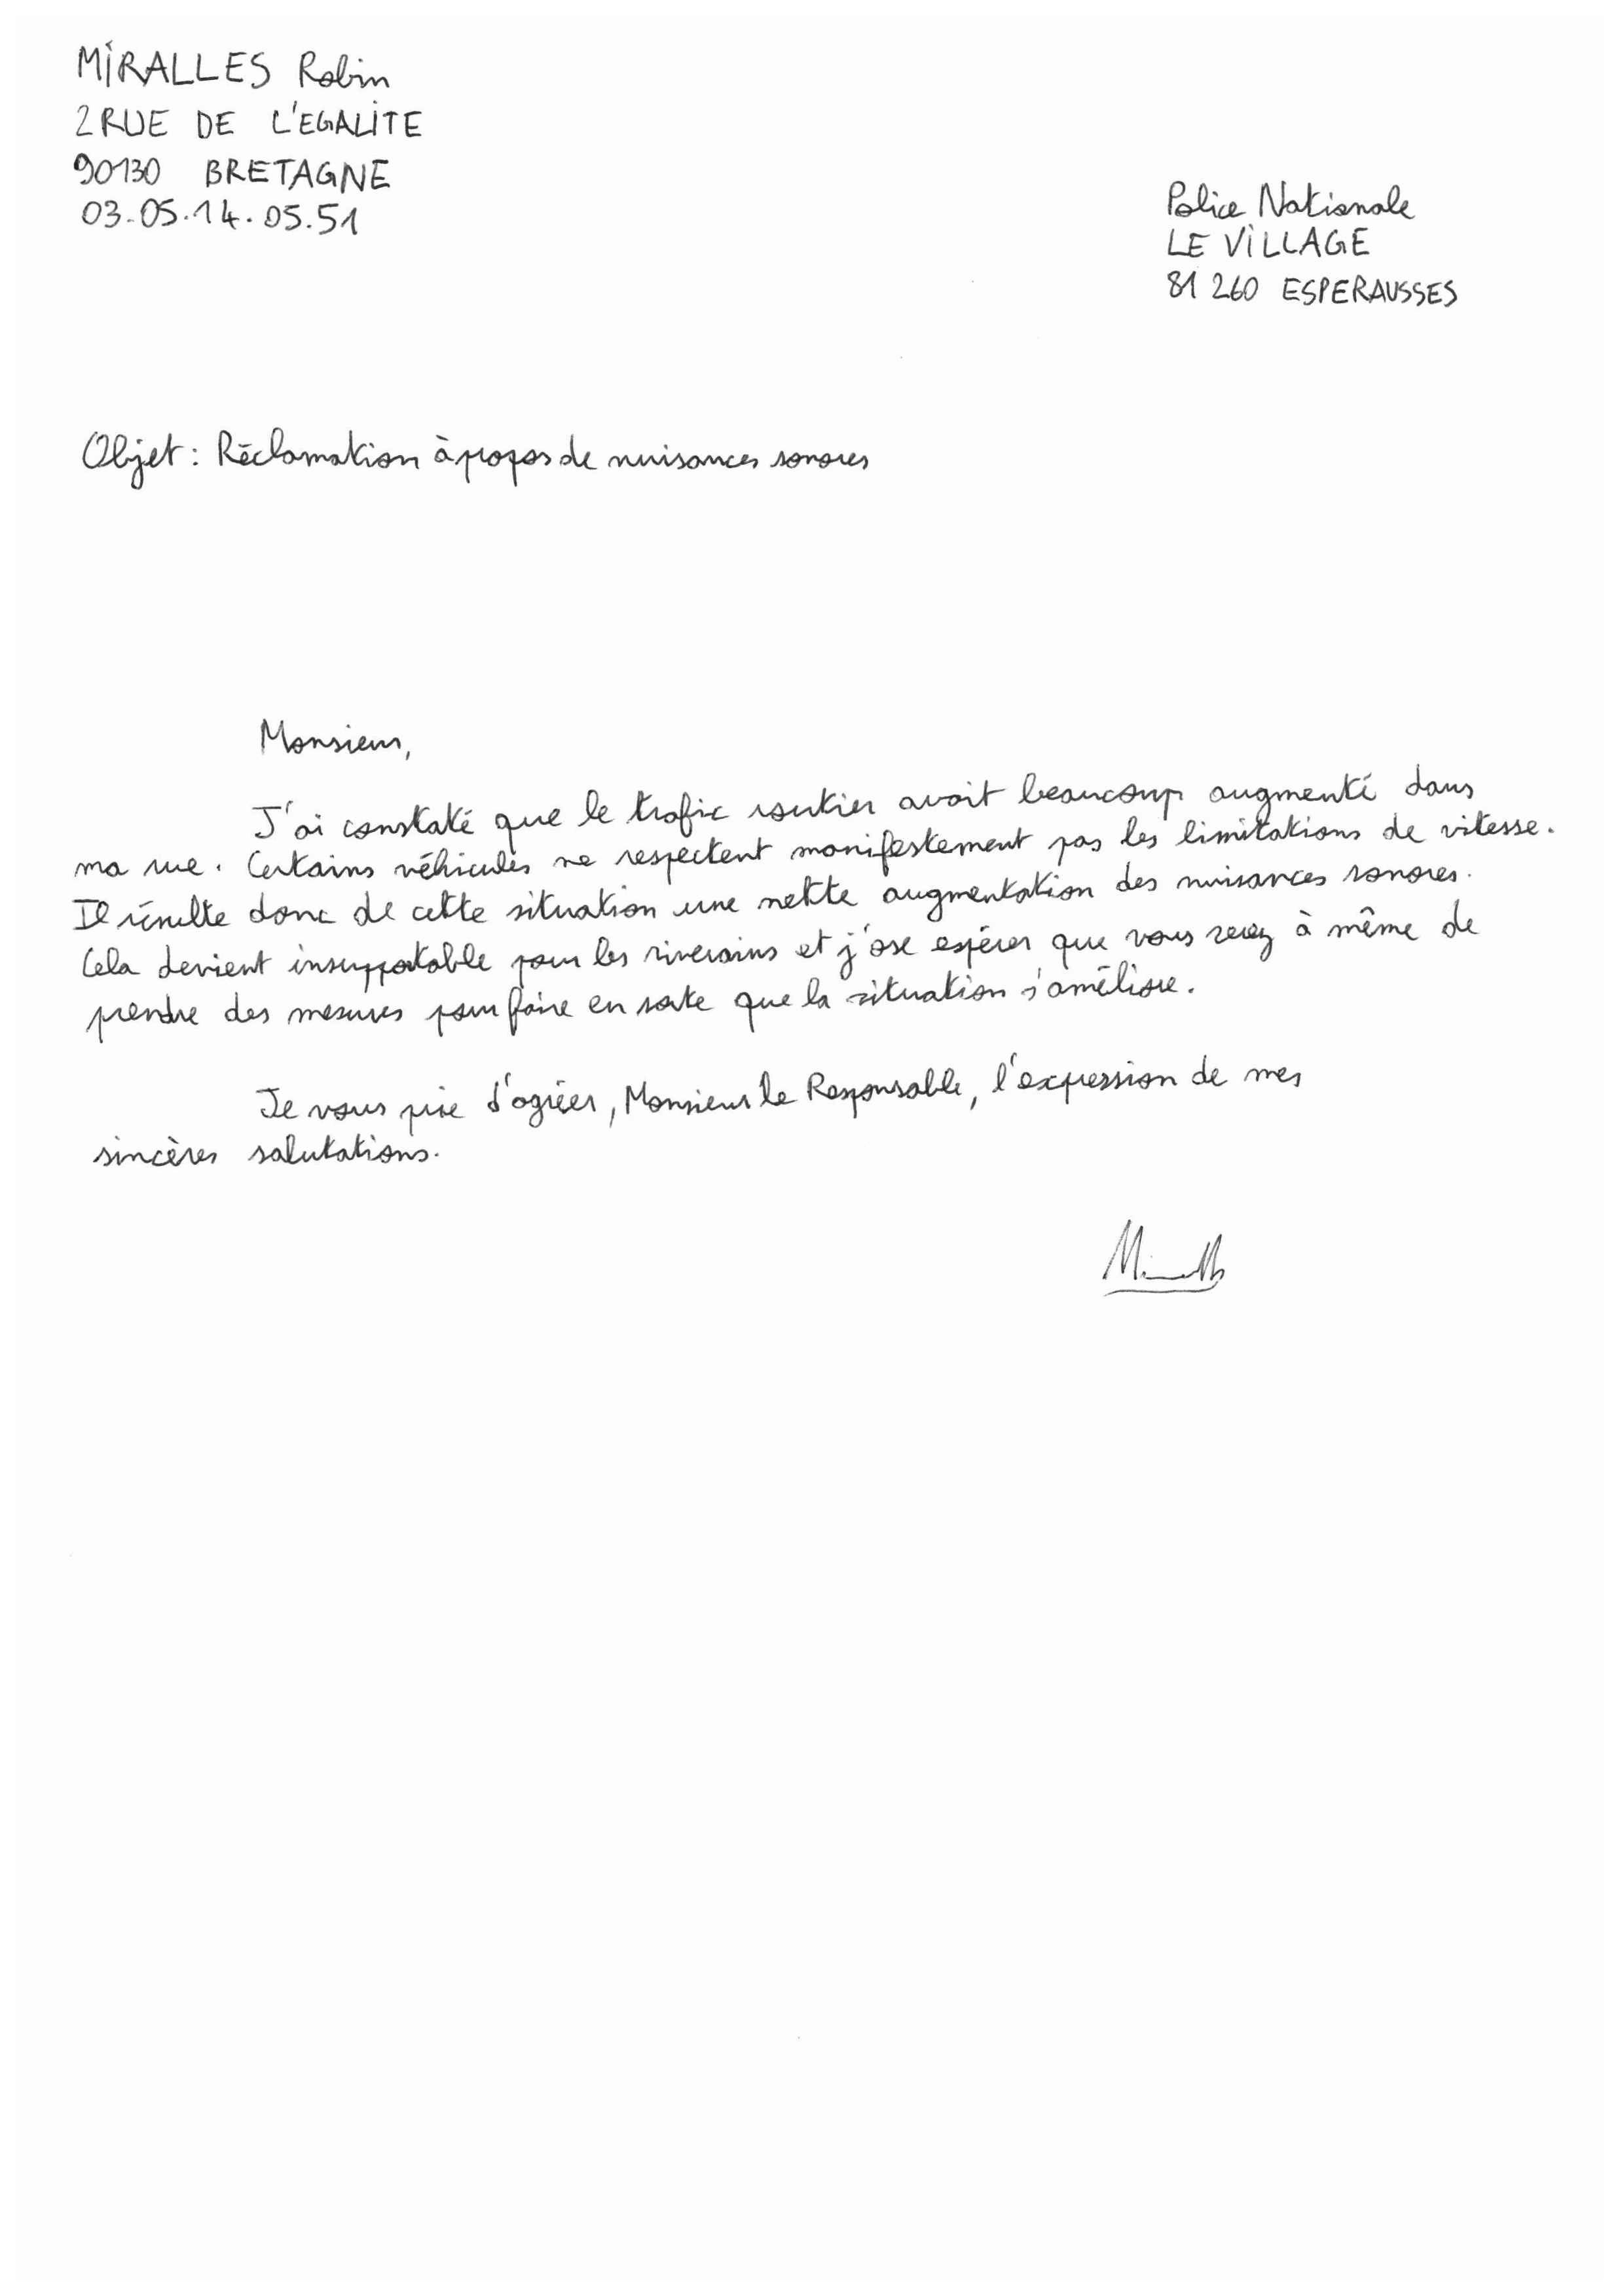 MIRALLES Robin
2 RUE DE L'EGALITE
90130 BRETAGNE
03.05.14.05.51
Police Nationale
LE VILLAGE
81 260 ESPERAUSSES
Objet : Réclamation à propos de nuisances sonores
Monsieur,
J'ai constaté que le trafic routier avait beaucoup augmenté dans
ma rue. Certains véhicules ne respectent manifestement pas les limitations de vitesse.
Il résulte donc de cette situation une nette augmentation des nuisances sonores.
Cela devient insupportable pour les riverains et j'ose espérer que vous serez à même de
prendre des mesures pour faire en sorte que la situation s'améliore.
Je vous prie d'agréer, Monsieur le Responsable, l'expression de mes
sincères salutations.